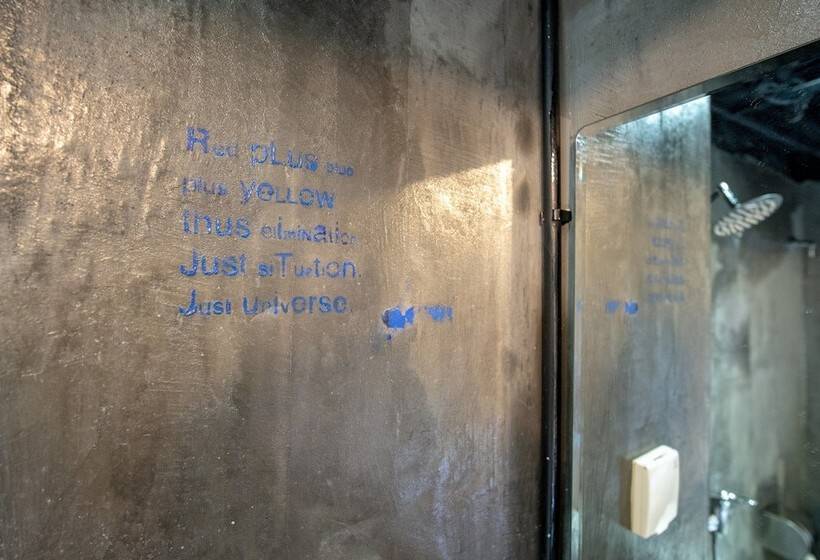 Red pLus blue
plus yeLLOW
thus eliminatior
Just siTuation.
Just Universe.